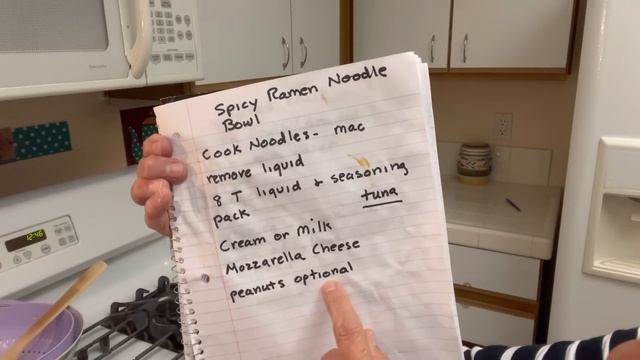 Spicy Ramen Noodle
Bowl
Cook Noodles - mac
remove liquid
8 T liquid + seasoning
pack
tuna
Cream or Milk
Mozzarella Cheese
peanuts optional
12:46